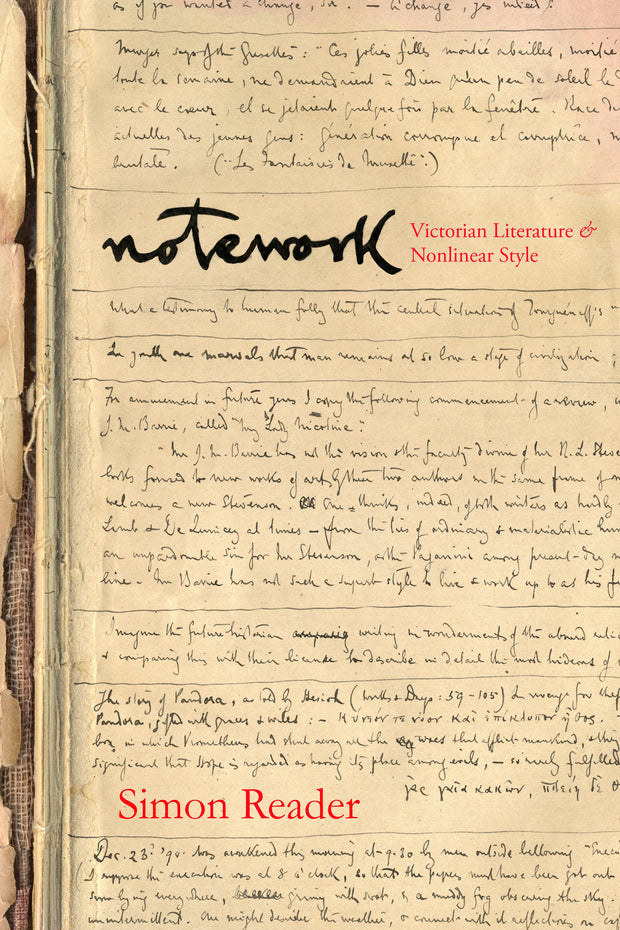 as if you wanted a change, Sir. — A change, yes indeed!
Murger says of the Grisettes: "Ces jolies filles moitié abeilles, moitié
toute la semaine, ne demandaient à Dieu qu'un peu de soleil le
avec le cœur, et se jetaient quelquefois par la fenêtre. Race
actuelles des jeunes gens: génération corrompue et corruptrice,
brutale. ("Les Fantaisies de Musette".)
notework
Victorian Literature &
Nonlinear Style
What a testimony to human folly that the central situation of Tourguéneff's "
In youth one marvels that man remains at so low a stage of civilization;
For amusement in future years I copy the following commencement of a review,
J. M. Barrie, called "My Lady Nicotine":
"Mr J. M. Barrie has not the vision & the faculty divine of Mr R. L. Steve
looks forward to new works of art by these two authors in the same frame of
welcomes a new Stevenson. One thinks, indeed, of both writers as
Lamb & De Quincey at times – from the lips of ordinary & materialistic
an unpardonable sin for Mr Stevenson, as the Paganini among present-day
line. – Mr Barrie has not such a superb style to live & work up to as his
Imagine the future historian writing in wonderment of the absurd
& comparing this with their license to describe in detail the most hideous of
The story of Pandora, as told by Hesiod (Works & Days: 59 – 105) in revenge for
Pandora, gifted with graces & wiles: –
box in which Prometheus had shut away all the woes that afflict mankind,
significant that Hope is regarded as having its place among evils, – so
Simon Reader
Dec. 23rd '90. was awakened this morning at 9.30 by men outside bellowing
(I suppose the execution was at 8 o'clock, so that the papers must have been got out
snow lying everywhere, with soot, & a muddy fog obscuring the sky.
unintermittent. One might describe the weather, & connect with it reflections on